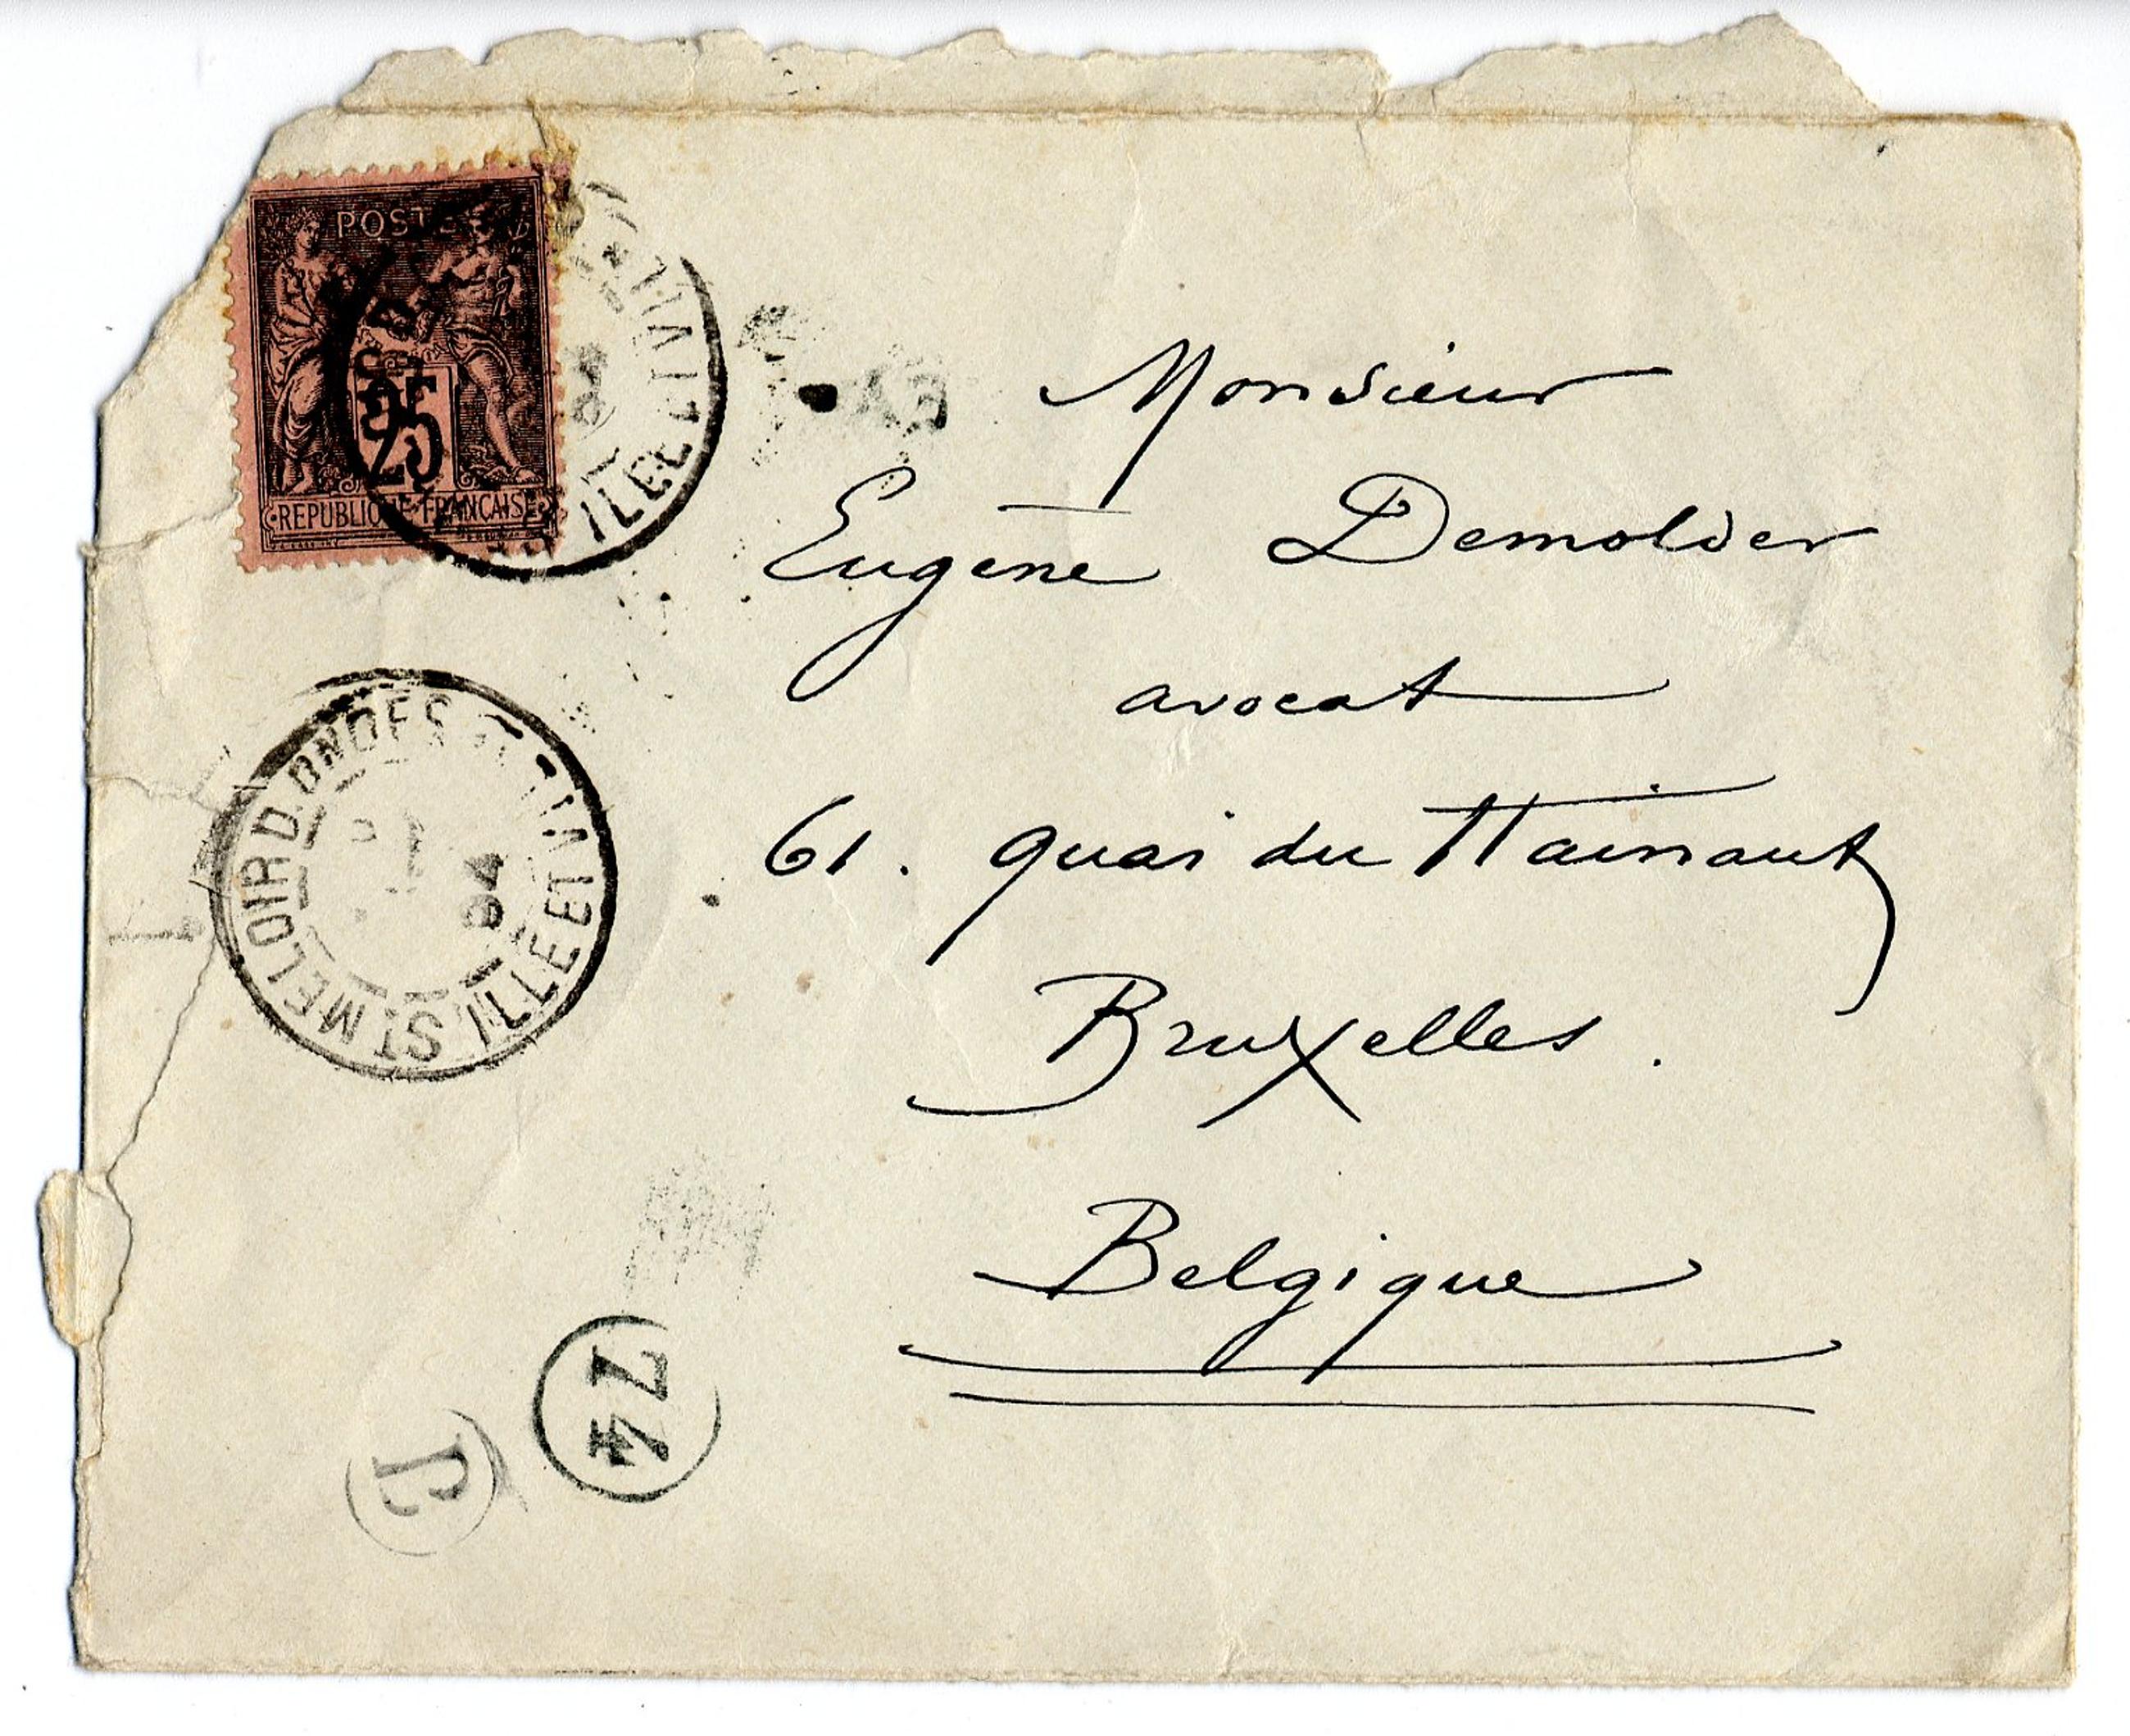 POSTE
25
REPUBLIQUE FRANCAISE
ILLE ET VIL.
94
Monsieur
Eugène Demolder
avocat
61. quai du Hainaut
Bruxelles.
Belgique
ST MELOIR D. ONDES
ILLE ET VIL
94
74
J